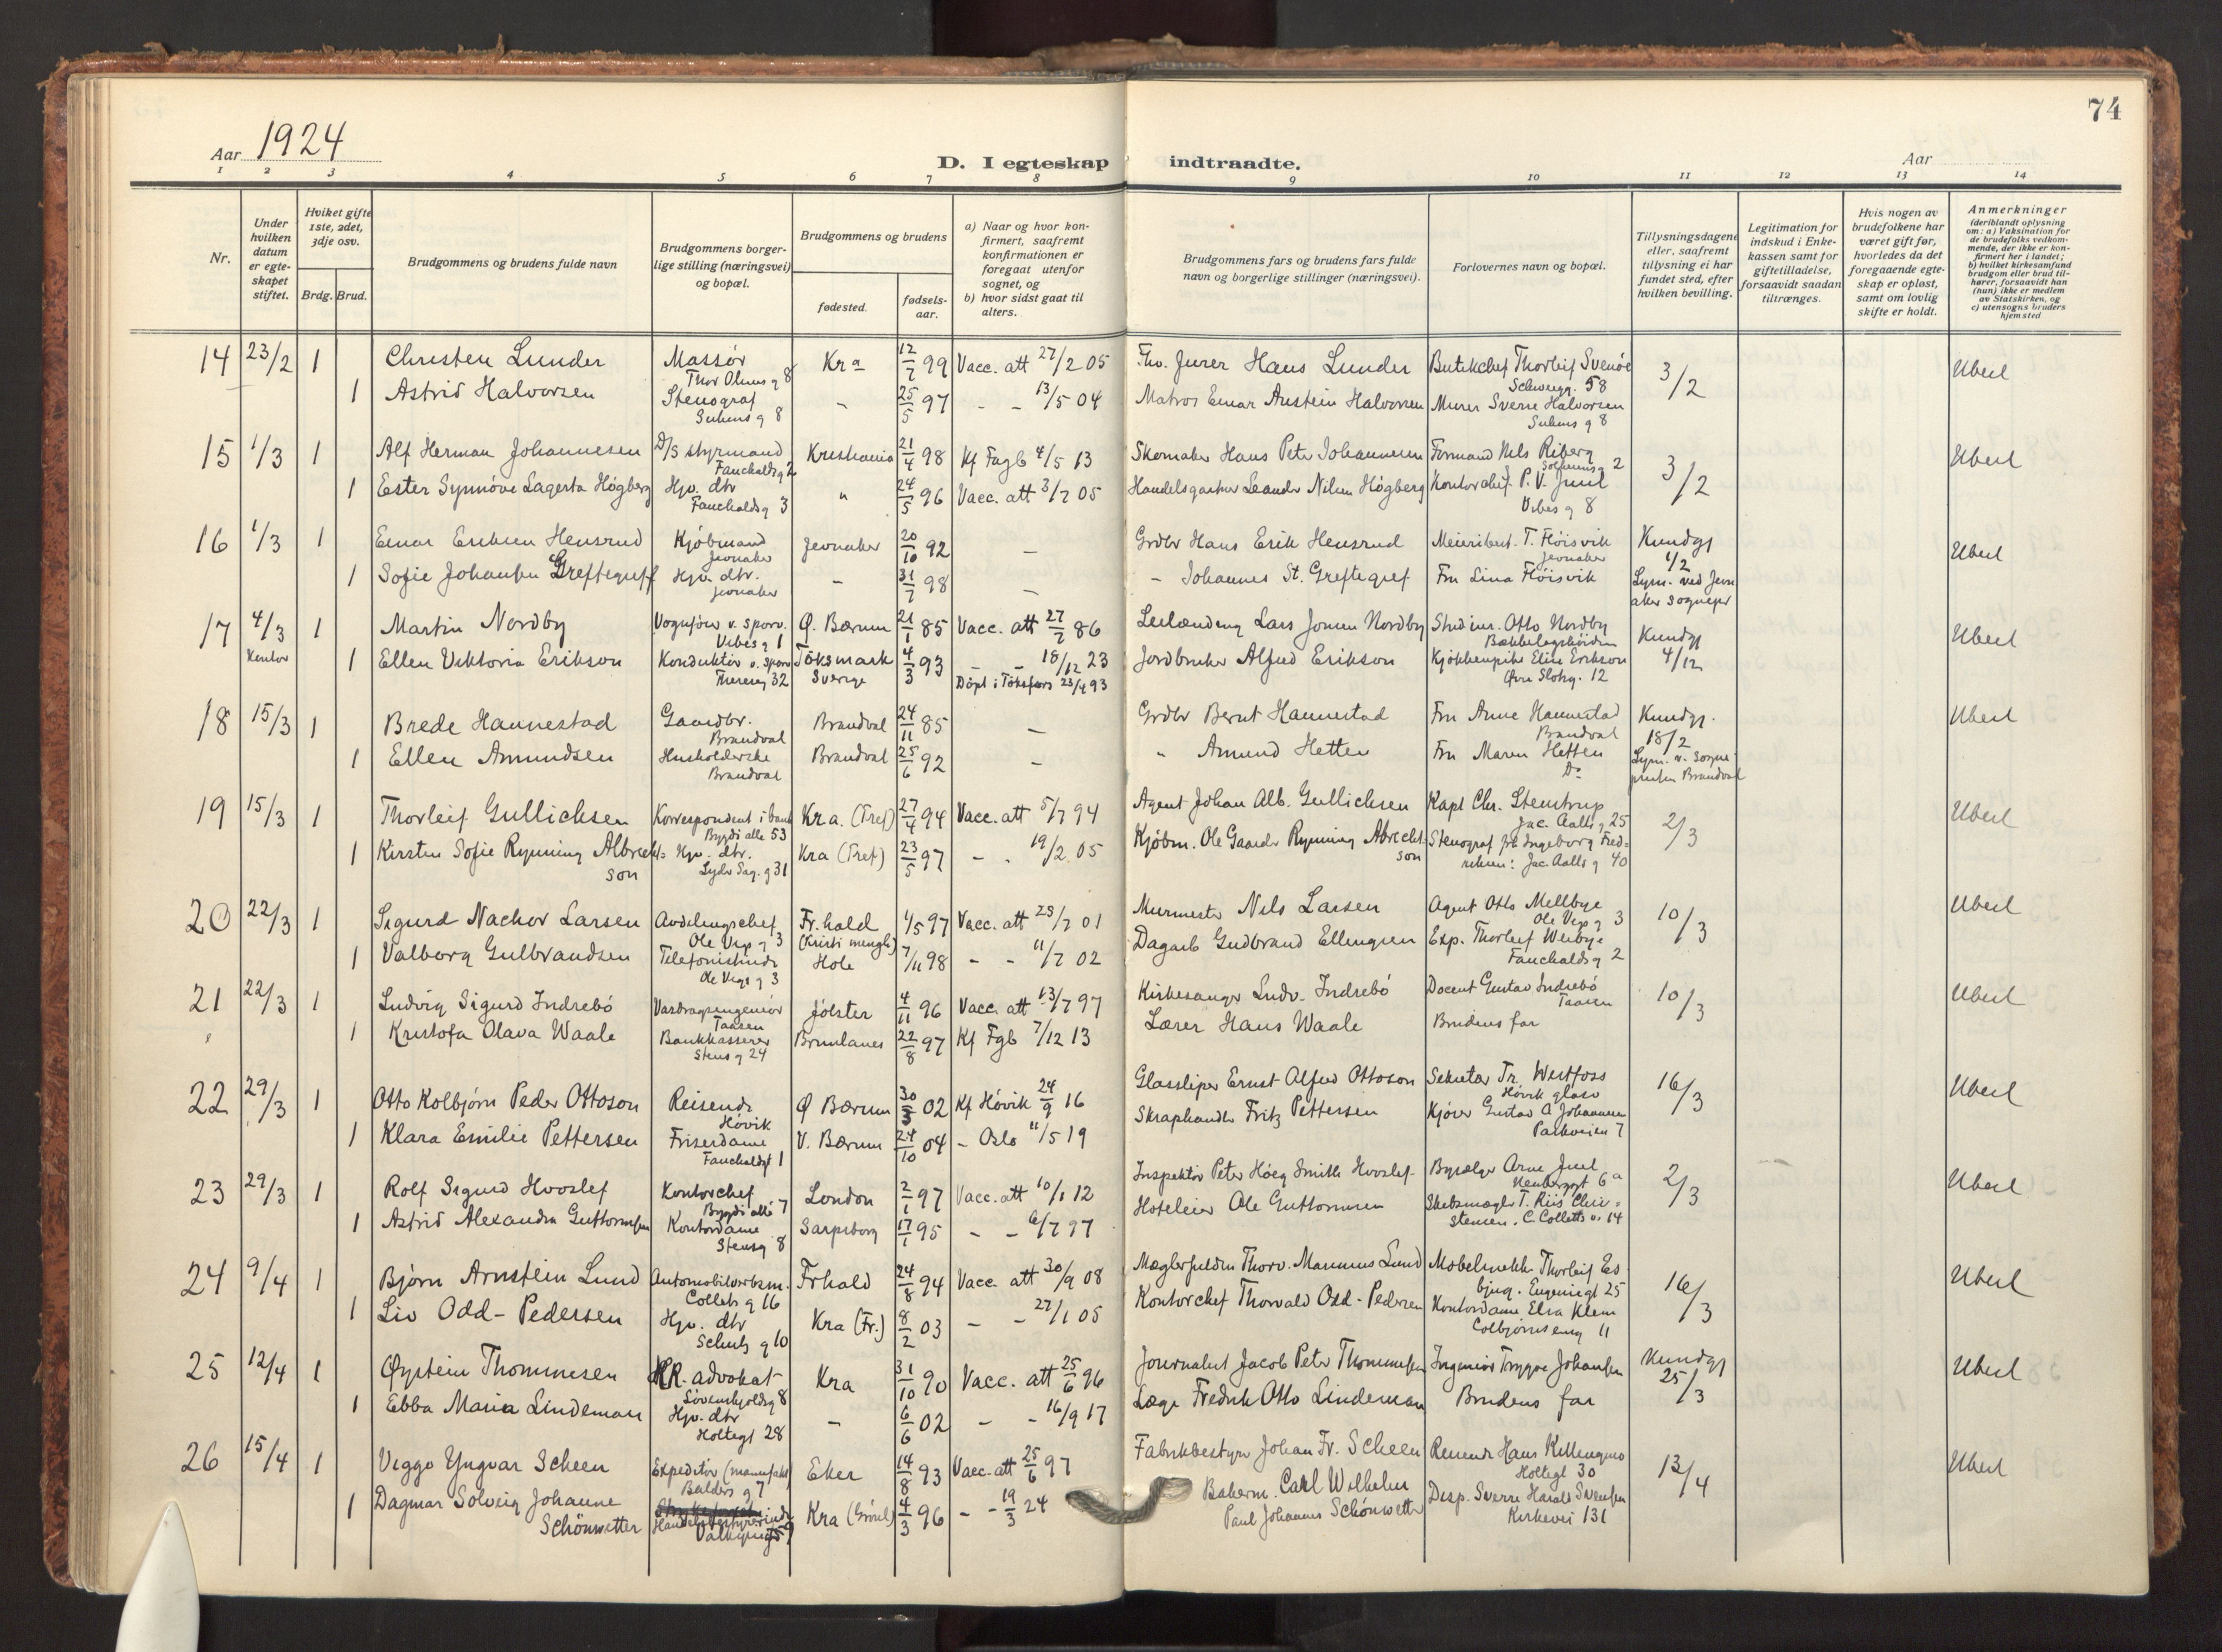 74
Aar 1924
D. I egteskap indtraadte.
Aar
1 2 3 4 5 6 7 8 9 10 11 12 13 14
Nr.
Under hvilken datum er egte-skapet stiftet.
Hvilket gifte 1ste, 2det, 3dje osv.
Brdg. Brud.
Brudgommens og brudens fulde navn
Brudgommens borger-lige stilling (næringsvei) og bopæl.
Brudgommens og brudens
fødested.
fødsels-aar.
a) Naar og hvor kon-firmert, saafremt konfirmationen er foregaat utenfor sognet, og
b) hvor sidst gaat til alters.
Brudgommens fars og brudens fars fulde navn og borgerlige stillinger (næringsvei).
Forlovernes navn og bopæl.
Tillysningsdagene eller, saafremt tillysning ei har fundet sted, efter hvilken bevilling.
Legitimation for indskud i Enke-kassen samt for giftetilladelse, forsaavidt saadan tiltrænges.
Hvis nogen av brudefolkene har været gift før, hvorledes da det foregaaende egte-skap er opløst, samt om lovlig skifte er holdt.
Anmerkninger
(deriblandt oplysning om: a) Vaksination for de brudefolks vedkom-mende, der ikke er kon-firmert her i landet; b) hvilket kirkesamfund brudgom eller brud til-hører, forsaavidt han (hun) ikke er medlem av Statskirken, og c) utensogns bruders hjemsted
14 23/2 1 Christen Lunder Massør Kra 12/7 99 Vacc. att 27/2 05 Hans Lunder Butikchef Thorleif Svenöe 3/2 Uberl
Thor Olsens g 8 58
1 Astrid Halvorsen Stenograf - 25/5 97 - - 13/5 04 Matros Einar Austein Halvorsen Murer Sverre Halvorsen
Suhms g 8 Suhms g 8
15 1/3 1 Alf Herman Johannesen D/S styrmand Kristiania 21/4 98 Kf Fagb 4/5 13 Skomaker Hans Peter Johannesen Formand Nels Riberg 3/2 Uberl
Fauchaldsg 2 2
1 Ester Synnöve Lagerta Högberg Hjv. dtr " 24/5 96 Vacc. att 3/7 05 Handelsgartner Leander Nilsen Högberg Kontorchef P. V. Juul
Fauchaldsg 3 Vibes g 8
16 1/3 1 Einar Eriksen Hensrud Kjöbmand Jevnaker 20/10 92 - Grdbr Hans Erik Hensrud Meieribest. T. Flöisvik Kundgj 1/2 Uberl
Jevnaker Jevnaker
1 Sofie Johansen Greftegreff Hjv. dtr. - 31/7 98 - - Johannes St. Greftegref Fru Lina Flöisvik Lysn. ved Jevn
Jevnaker aker sognepr
17 4/3 1 Martin Nordby Vognfører v. sporv. Ø. Bærum 21/1 85 Vacc. att 27/7 86 Leilænding Lars Jonsen Nordby Otto Nordby Kundgj 4/12 Uberl
Kontor Vibesg 1 Bækkelagshöiden
1 Ellen Viktoria Erikson Konduktör v. sporv Töksmark 4/3 93 - - 18/12 23 Jordbruker Alfred Erikson Kjökkenpike Elise Erikson
Theresesg 32 Sverige Döpt i Töksfors 23/4 93 Øvre Slotsg. 12
18 15/3 1 Brede Hannestad Gaardbr. Brandval 24/11 85 - Grdbr Bernt Hannestad Fru Anne Hannestad Kundgj. 18/2 Uberl
Brandval Brandval
1 Ellen Amundsen Husholderske Brandval 25/6 92 - " Amund Hetten Fru Maren Hetten Lysn. v. Sogne
Brandval Do presten Brandval
19 15/3 1 Thorleif Gullichsen Korrespondent i bank Kra. (Tref) 27/4 94 Vacc. att 5/7 94 Agent Johan Alb. Gullichsen Kapt Chr. Stenstrup 2/3 Uberl
Bygdö alle 53 Jac. Aalls g 25
1 Kirsten Sofie Rynning Albrecht= Hjv. dtr. Kra (Tref) 23/5 97 - - 19/2 05 Kjöbm. Ole Gaarder Rynning Abrecht= Stenograf frk Ingeborg Fred=
son Lyder Sag. g 31 son riksen: Jac. Aalls g 40
20 22/3 1 Sigurd Nachor Larsen Avdelingschef Fr.hald 4/5 97 Vacc. att 28/7 01 Murmester Nils Larsen Agent Otto Mellbye 10/3 Uberl
Ole Vigs g 3 (Kristi mengh) Ole Vigs g 3
1 Valborg Gulbrandsen Telefonistinde Hole 7/11 98 - - 11/7 02 Dagarb Gudbrand Ellengsen Exp. Thorleif Weibye
Ole Vigs g 3 Fauchalds g 2
21 22/3 1 Ludvig Sigurd Indrebö Vasdragsingeniör Jölster 4/11 96 Vacc. att 13/7 97 Kirkesanger Ludv. Indrebö Docent Gustav Indrebö 10/3 Uberl
Taasen Taasen
1 Kristofa Olava Waale Bankkasserer Brunlanes 22/8 97 Kf Fgb 7/12 13 Lærer Hans Waale Brudens far
Stens g 24
22 29/3 1 Otto Kolbjörn Peder Ottoson Reisende Ø Bærum 30/3 02 Kf Hövik 24/9 16 Glassliper Ernst Alfred Ottoson Sekretær Tr. Westfoss 16/3 Uberl
Hövik Hövik glasv
1 Klara Emilie Pettersen Friserdame V. Bærum 24/10 04 - Oslo 11/5 19 Skraphandler Fritz Pettersen Kjörer Gustav A Johannesen
Fauchaldsgt 1 Parkveien 7
23 29/3 1 Rolf Sigurd Hvoslef Kontorchef London 2/1 97 Vacc. att 10/1 12 Inspektör Peter Höeg Smith Hvoslef Byselger Arne Juel 2/3 Uberl
Bygdö alle 7 Neubergsgt 6a
1 Astrid Alexandra Guttormsen Kontordame Sarpsborg 17/1 95 - - 6/7 97 Hoteleier Ole Guttormsen Skibsmægler T. Riis Chri=
Stensg 8 stensen. C. Colletts v. 14
24 9/4 1 Björn Arnstein Lund Automobilverksm. Frhald 24/8 94 Vacc. att 30/9 08 Mæglerfuldm Thorv. Marinius Lund Möbelsnekk. Thorleif Es 16/3 Uberl
Collets g 16 bjug. Eugeniegt 25
1 Liv Odd-Pedersen Hjv. dtr Kra (Fr.) 8/2 03 - - 27/1 05 Kontorchef Thorvald Odd-Pedersen Kontordame Elsa Klem
Schultz g 10 Colbjörnsensg 11
25 12/4 1 Øystein Thommesen HR. advokat Kra 31/10 90 Vacc. att 25/6 96 Journalist Jacob Peter Thommesen Ingeniör Trygve Johansen Kundgj 25/3 Uberl
Lövenskjoldsg 8
1 Ebba Maria Lindeman Hjv. dtr - 6/6 02 - - 16/9 17 Læge Fredrik Otto Lindeman Brudens far
Holtegt 28
26 15/4 1 Viggo Yngvar Scheen Expeditör (manufakt) Eker 14/8 93 Vacc. att 25/6 97 Fabrikbestyrer Johan Fr. Scheen Reisende Hans Killengmo 13/4 Uberl
Balders g 7 Holtegt 30
1 Dagmar Solveig Johanne Handelsbestyrerinde Kra (Gimel) 4/3 96 - - 19/3 24 Bakerm. Carl Wilhelm Disp. Sverre Harald Svensen
Schönwetter Paul Johannes Schönwetter Kirkevei 131